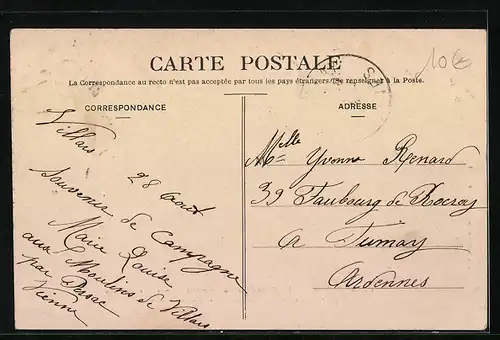 CARTE POSTALE
La Correspondance au recto n'est pas acceptée par tous les pays étrangers. (Se renseigner à la Poste.
CORRESPONDANCE
Villars
28 Août
Souvenir de Campagne
Marie Louise
aux Moulines de Villars
par
Vienne
ADRESSE
Melle Yvonne Renard
39 Faubourg de Rocroy
a Fumay
Ardennes
10€